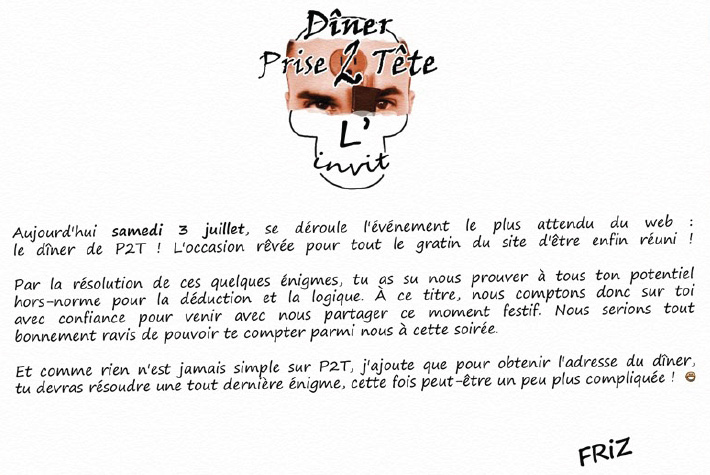 Dîner
Prise 2 Tête
L'
invit
Aujourd'hui samedi 3 juillet, se déroule l'événement le plus attendu du web :
le dîner de P2T ! L'occasion rêvée pour tout le gratin du site d'être enfin réuni !
Par la résolution de ces quelques énigmes, tu as su nous prouver à tous ton potentiel
hors-norme pour la déduction et la logique. À ce titre, nous comptons donc sur toi
avec confiance pour venir avec nous partager ce moment festif. Nous serions tout
bonnement ravis de pouvoir te compter parmi nous à cette soirée.
Et comme rien n'est jamais simple sur P2T, j'ajoute que pour obtenir l'adresse du dîner,
tu devras résoudre une tout dernière énigme, cette fois peut-être un peu plus compliquée !
FRiZ